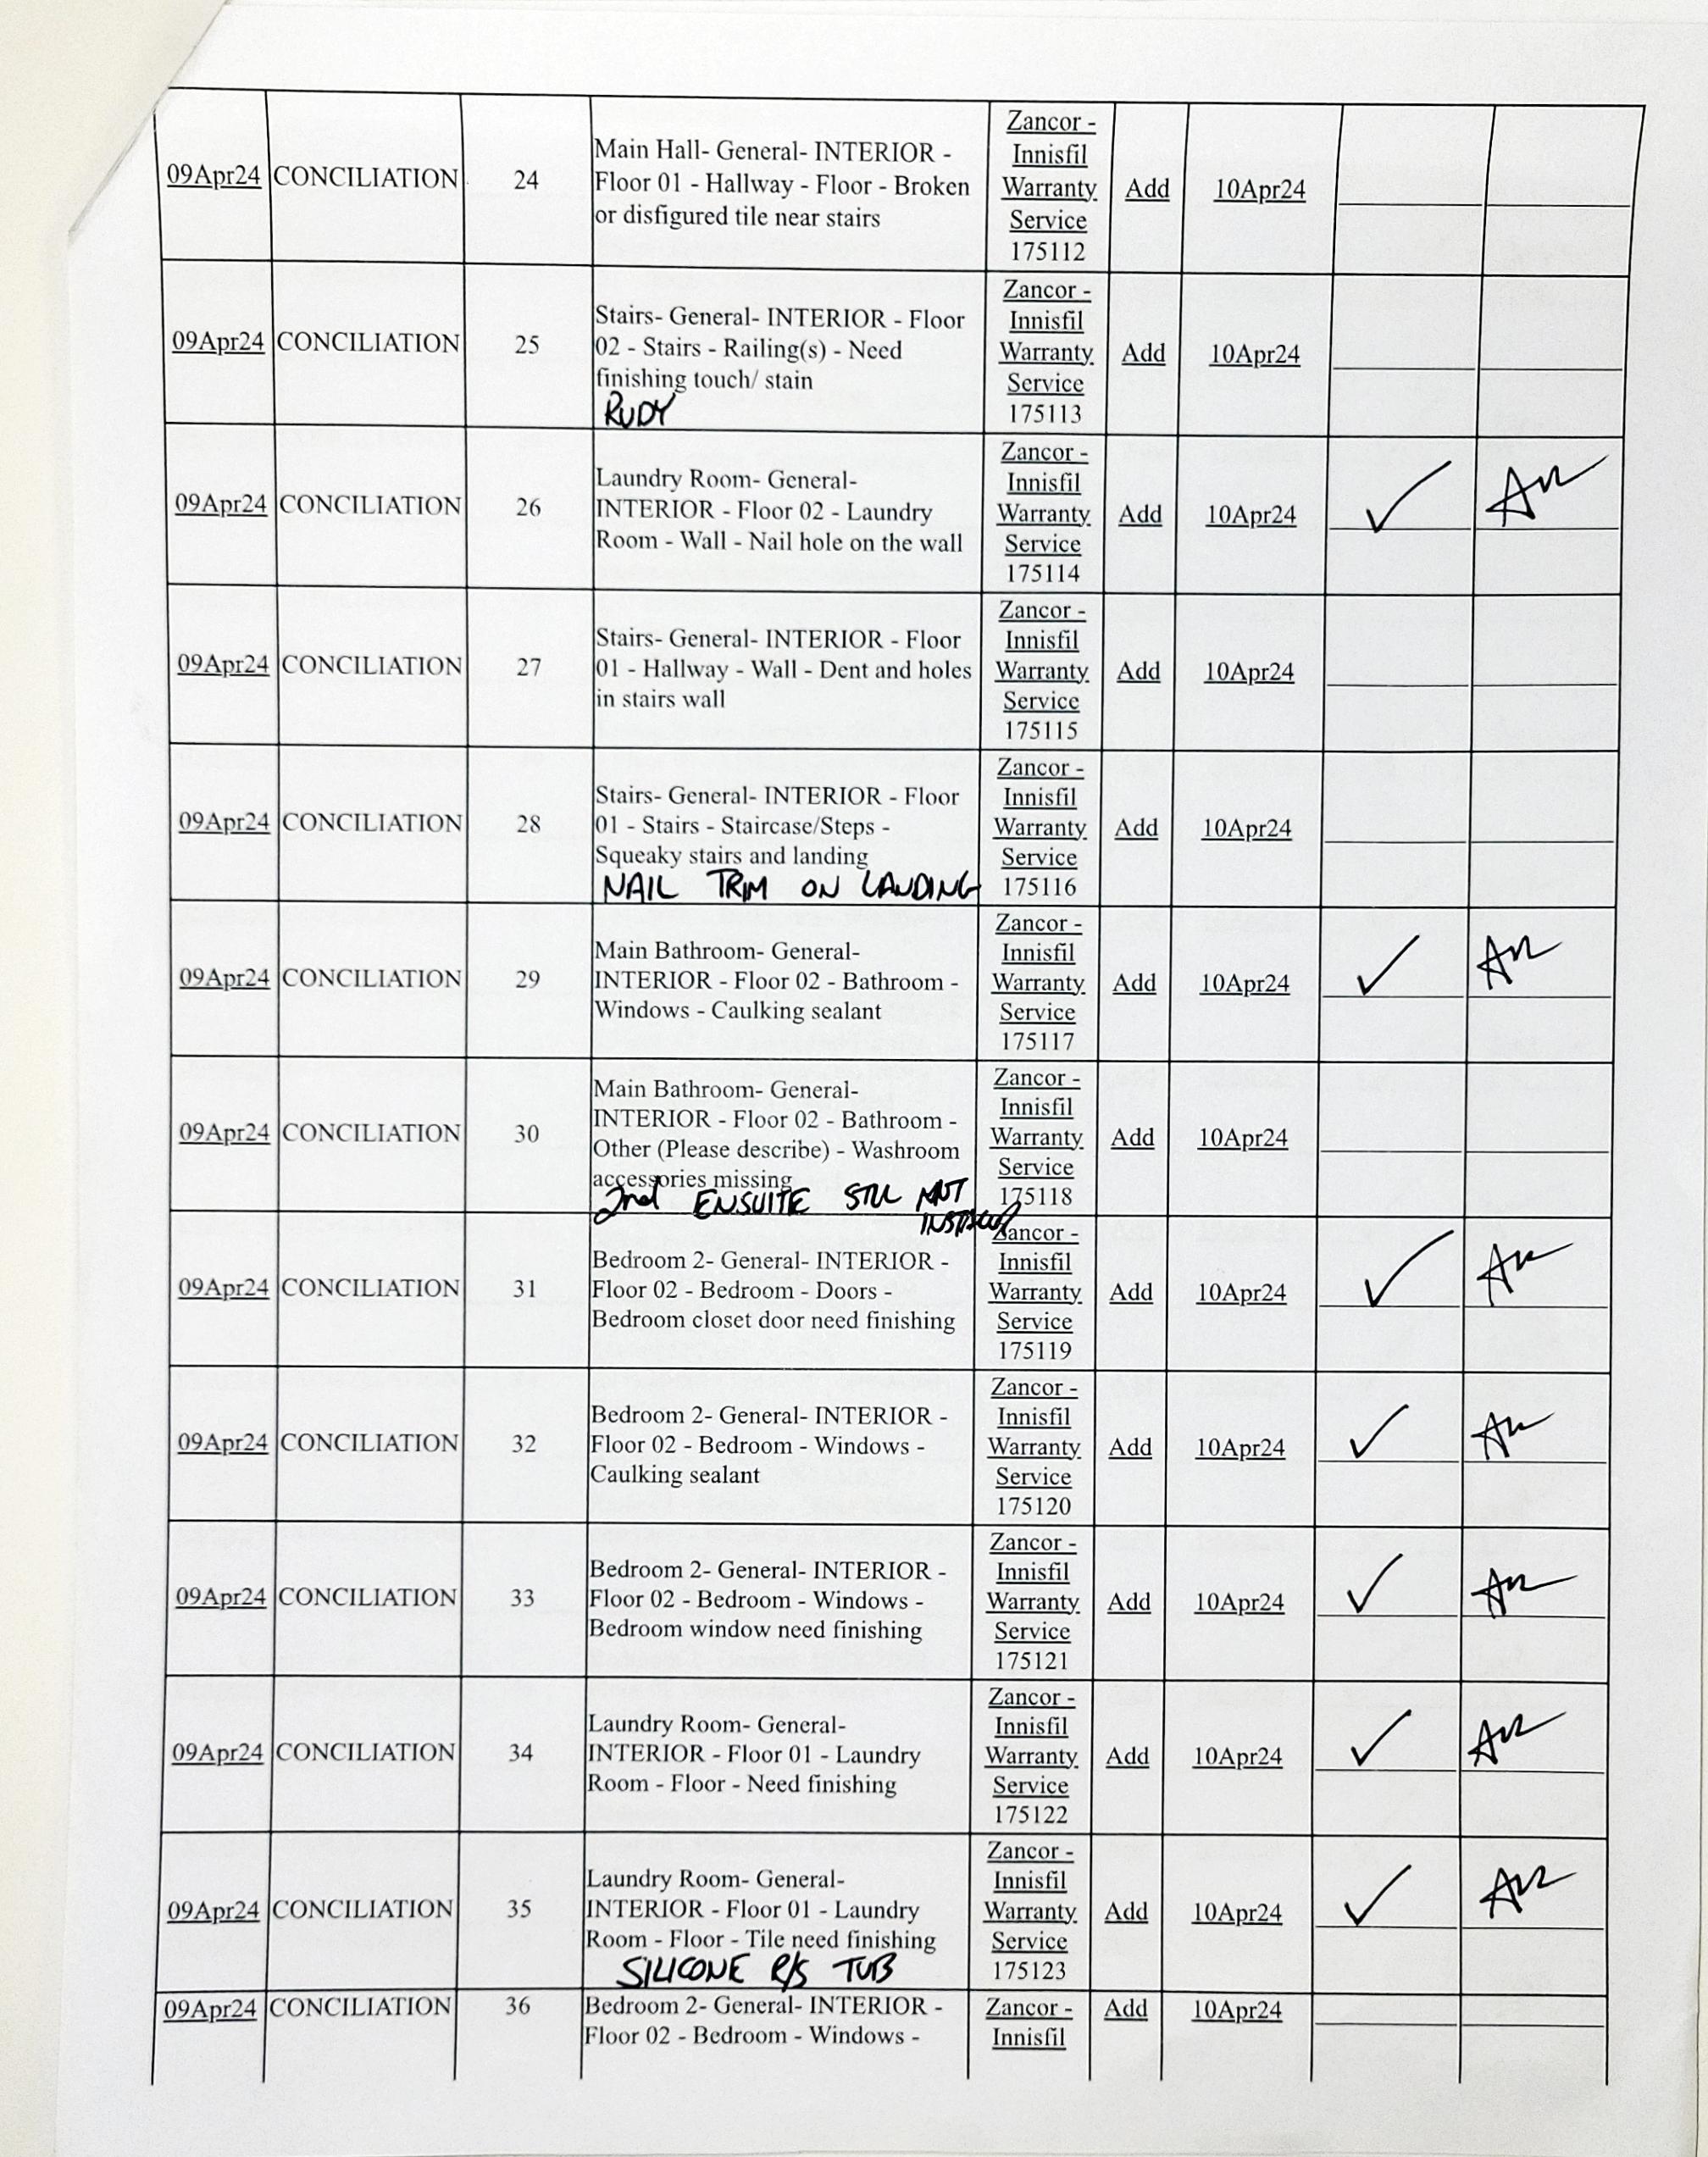 09Apr24 CONCILIATION 24 Main Hall- General- INTERIOR - Floor 01 - Hallway - Floor - Broken or disfigured tile near stairs Zancor - Innisfil Warranty Service 175112 Add 10Apr24
09Apr24 CONCILIATION 25 Stairs- General- INTERIOR - Floor 02 - Stairs - Railing(s) - Need finishing touch/ stain Zancor - Innisfil Warranty Service 175113 Add 10Apr24
RUDY
09Apr24 CONCILIATION 26 Laundry Room- General- INTERIOR - Floor 02 - Laundry Room - Wall - Nail hole on the wall Zancor - Innisfil Warranty Service 175114 Add 10Apr24 ✓
09Apr24 CONCILIATION 27 Stairs- General- INTERIOR - Floor 01 - Hallway - Wall - Dent and holes in stairs wall Zancor - Innisfil Warranty Service 175115 Add 10Apr24
09Apr24 CONCILIATION 28 Stairs- General- INTERIOR - Floor 01 - Stairs - Staircase/Steps - Squeaky stairs and landing Zancor - Innisfil Warranty Service 175116 Add 10Apr24
NAIL TRIM ON LANDING
09Apr24 CONCILIATION 29 Main Bathroom- General- INTERIOR - Floor 02 - Bathroom - Windows - Caulking sealant Zancor - Innisfil Warranty Service 175117 Add 10Apr24 ✓
09Apr24 CONCILIATION 30 Main Bathroom- General- INTERIOR - Floor 02 - Bathroom - Other (Please describe) - Washroom accessories missing Zancor - Innisfil Warranty Service 175118 Add 10Apr24
2nd ENSUITE NOT
09Apr24 CONCILIATION 31 Bedroom 2- General- INTERIOR - Floor 02 - Bedroom - Doors - Bedroom closet door need finishing Zancor - Innisfil Warranty Service 175119 Add 10Apr24 ✓
09Apr24 CONCILIATION 32 Bedroom 2- General- INTERIOR - Floor 02 - Bedroom - Windows - Caulking sealant Zancor - Innisfil Warranty Service 175120 Add 10Apr24 ✓
09Apr24 CONCILIATION 33 Bedroom 2- General- INTERIOR - Floor 02 - Bedroom - Windows - Bedroom window need finishing Zancor - Innisfil Warranty Service 175121 Add 10Apr24 ✓
09Apr24 CONCILIATION 34 Laundry Room- General- INTERIOR - Floor 01 - Laundry Room - Floor - Need finishing Zancor - Innisfil Warranty Service 175122 Add 10Apr24 ✓
09Apr24 CONCILIATION 35 Laundry Room- General- INTERIOR - Floor 01 - Laundry Room - Floor - Tile need finishing Zancor - Innisfil Warranty Service 175123 Add 10Apr24 ✓
SILICONE R/S TUB
09Apr24 CONCILIATION 36 Bedroom 2- General- INTERIOR - Floor 02 - Bedroom - Windows - Zancor - Innisfil Add 10Apr24